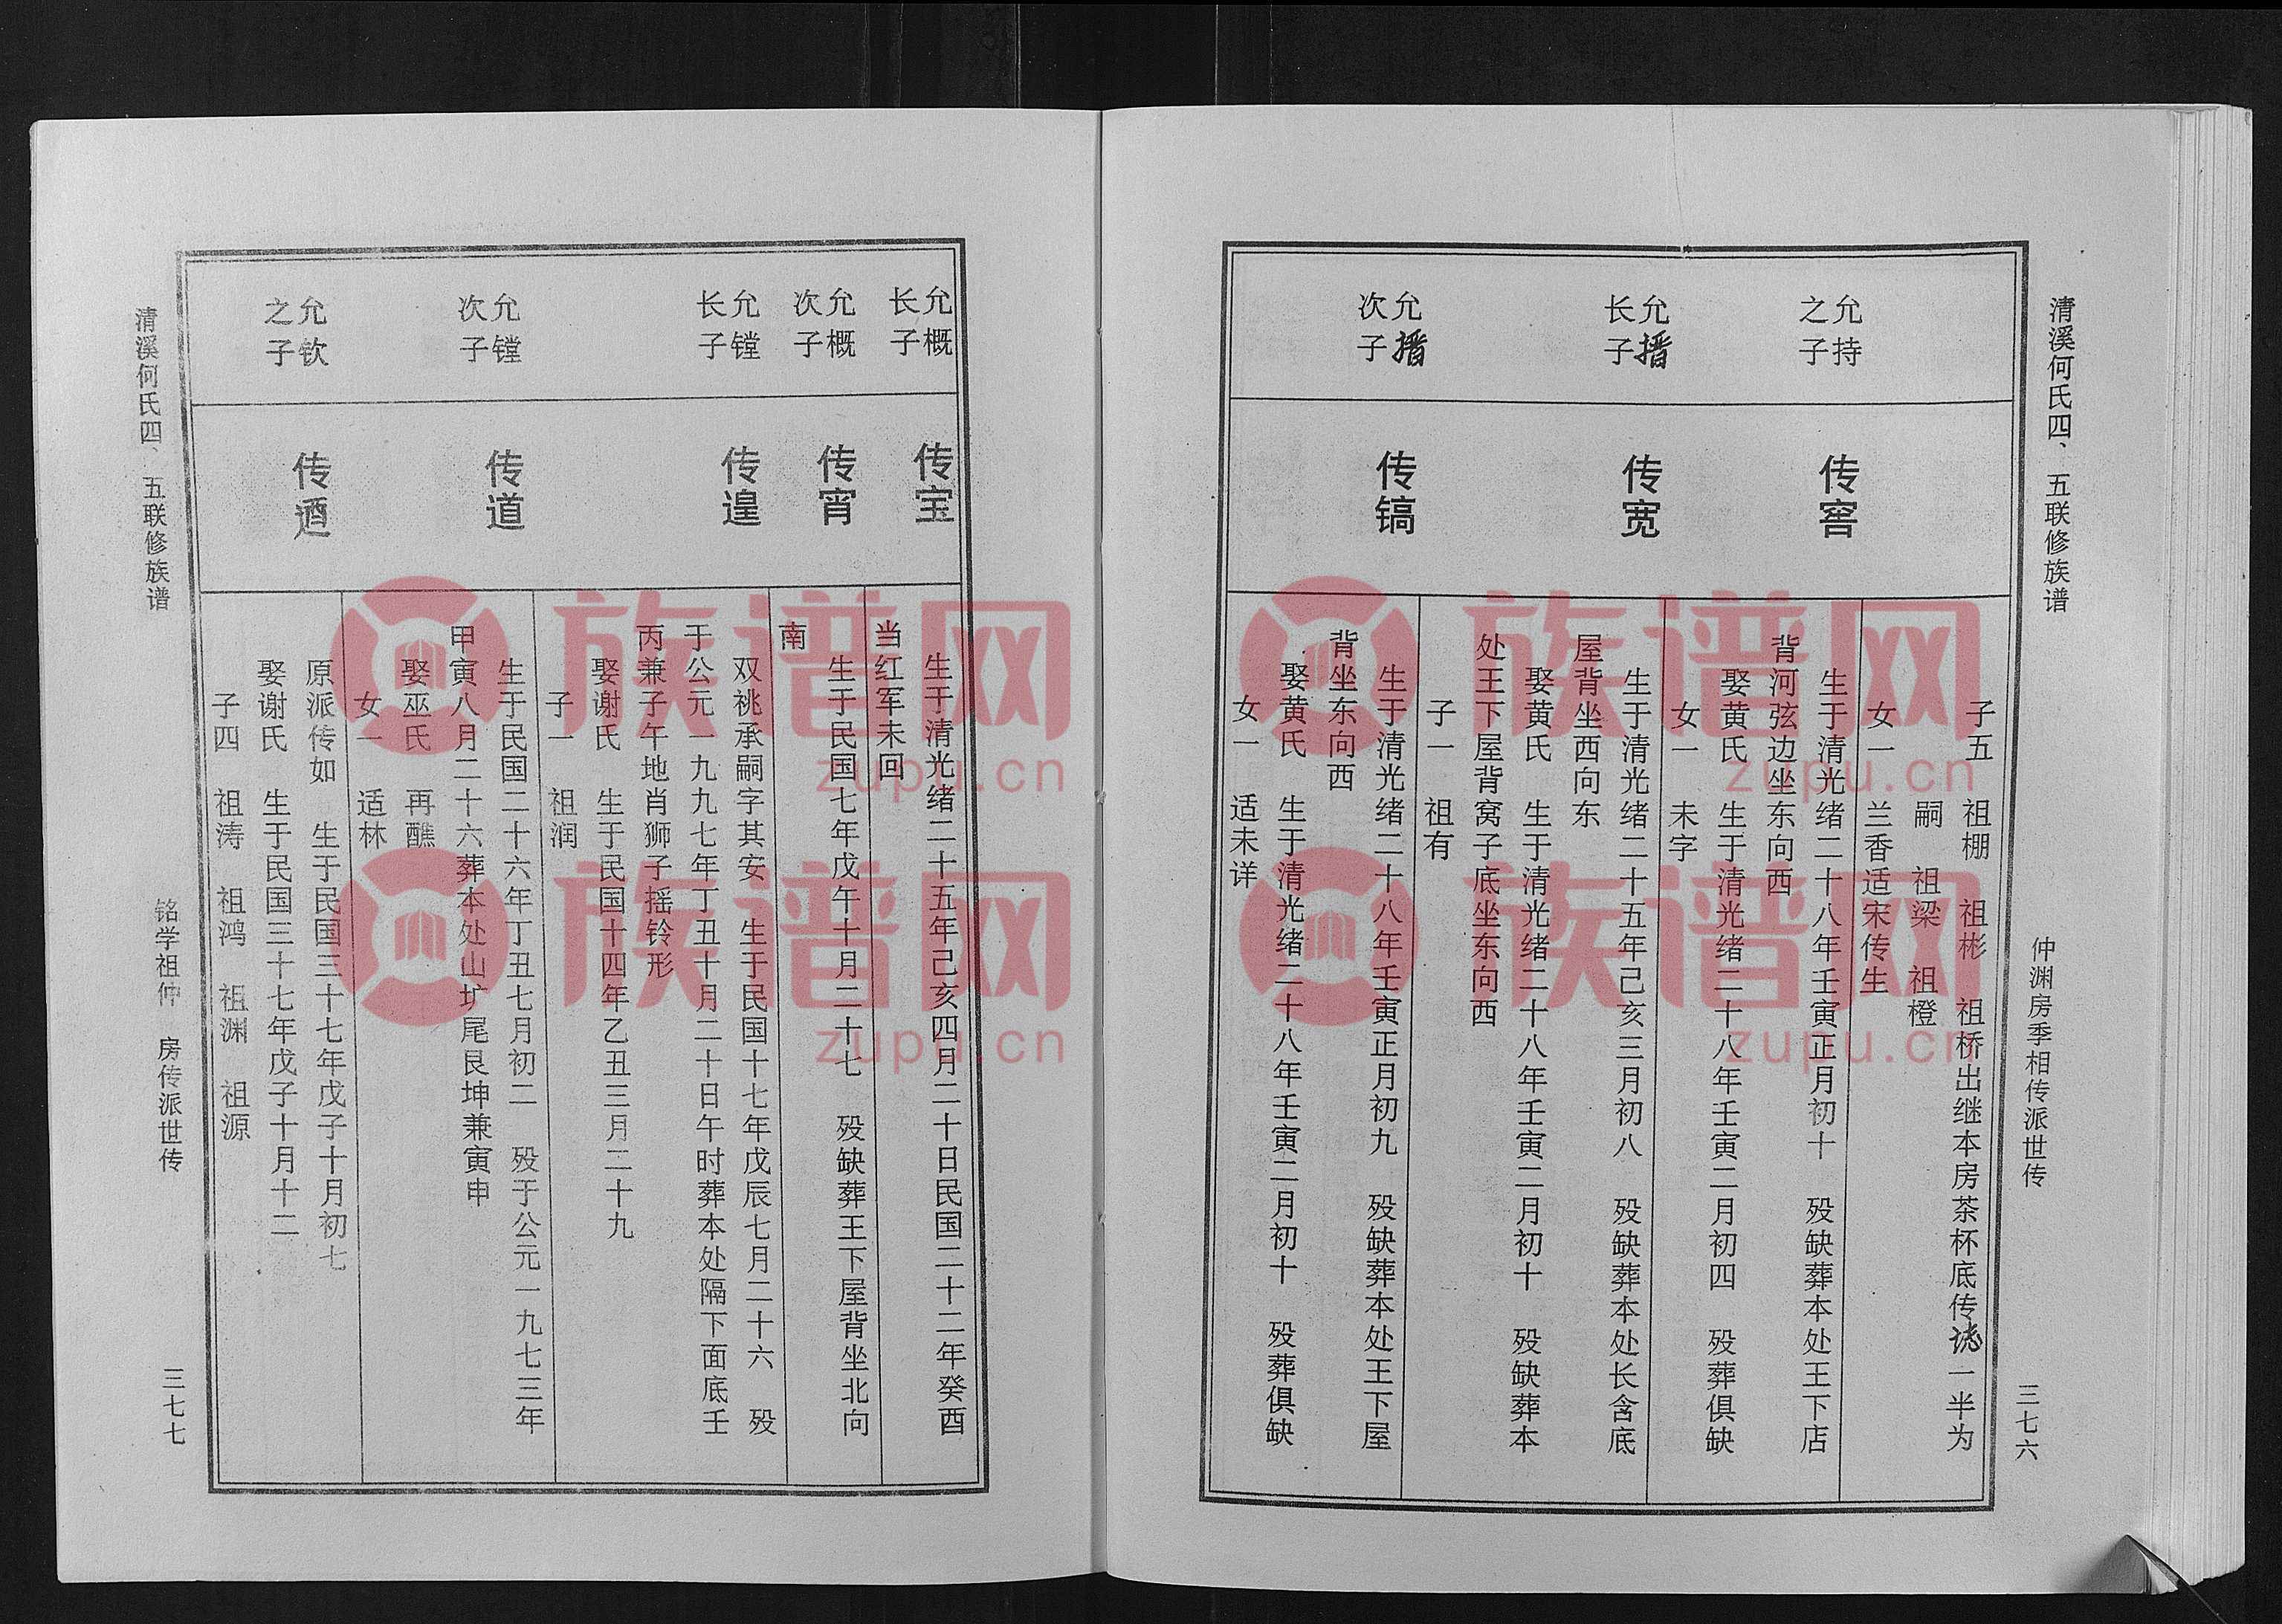 清溪何氏四、五联修族谱
仲渊房季相传派世传
三七六
允持
之子
传窖
子五 祖棚 祖彬 祖桥出继本房茶杯底传 一半为
嗣 祖梁 祖橙
女一 兰香适宋传生
生于清光绪二十八年壬寅正月初十 殁缺葬本处王下店
背河弦边坐东向西
娶黄氏 生于清光绪二十八年壬寅二月初四 殁葬俱缺
女一 未字
允播
长子
传宽
生于清光绪二十五年己亥三月初八 殁缺葬本处长含底
屋背坐西向东
娶黄氏 生于清光绪二十八年壬寅二月初十 殁缺葬本
处王下屋背窝子底坐东向西
子一 祖有
允播
次子
传镐
生于清光绪二十八年壬寅正月初九 殁缺葬本处王下屋
背坐东向西
娶黄氏 生于清光绪二十八年壬寅二月初十 殁葬俱缺
女一 适未详
允概
长子
传宝
生于清光绪二十五年己亥四月二十日民国二十二年癸酉
当红军未回
允概
次子
传宵
生于民国七年戊午十月二十七 殁缺葬王下屋背坐北向
南
允镗
长子
传遑
双祧承嗣字其安 生于民国十七年戊辰七月二十六 殁
于公元一九九七年丁丑十月二十日午时葬本处隔下面底壬
丙兼子午地肖狮子摇铃形
娶谢氏 生于民国十四年乙丑三月二十九
子一 祖润
允镗
次子
传道
生于民国二十六年丁丑七月初二 殁于公元一九七三年
甲寅八月二十六葬本处山圹尾艮坤兼寅申
娶巫氏 再醮
女一 适林
允钦
之子
传逎
原派传如 生于民国三十七年戊子十月初七
娶谢氏 生于民国三十七年戊子十月十二
子四 祖涛 祖鸿 祖渊 祖源
清溪何氏四、五联修族谱
铭学祖仲 房传派世传
三七七
族谱网
zupu.cn
族谱网
zupu.cn
族谱网
zupu.cn
族谱网
zupu.cn